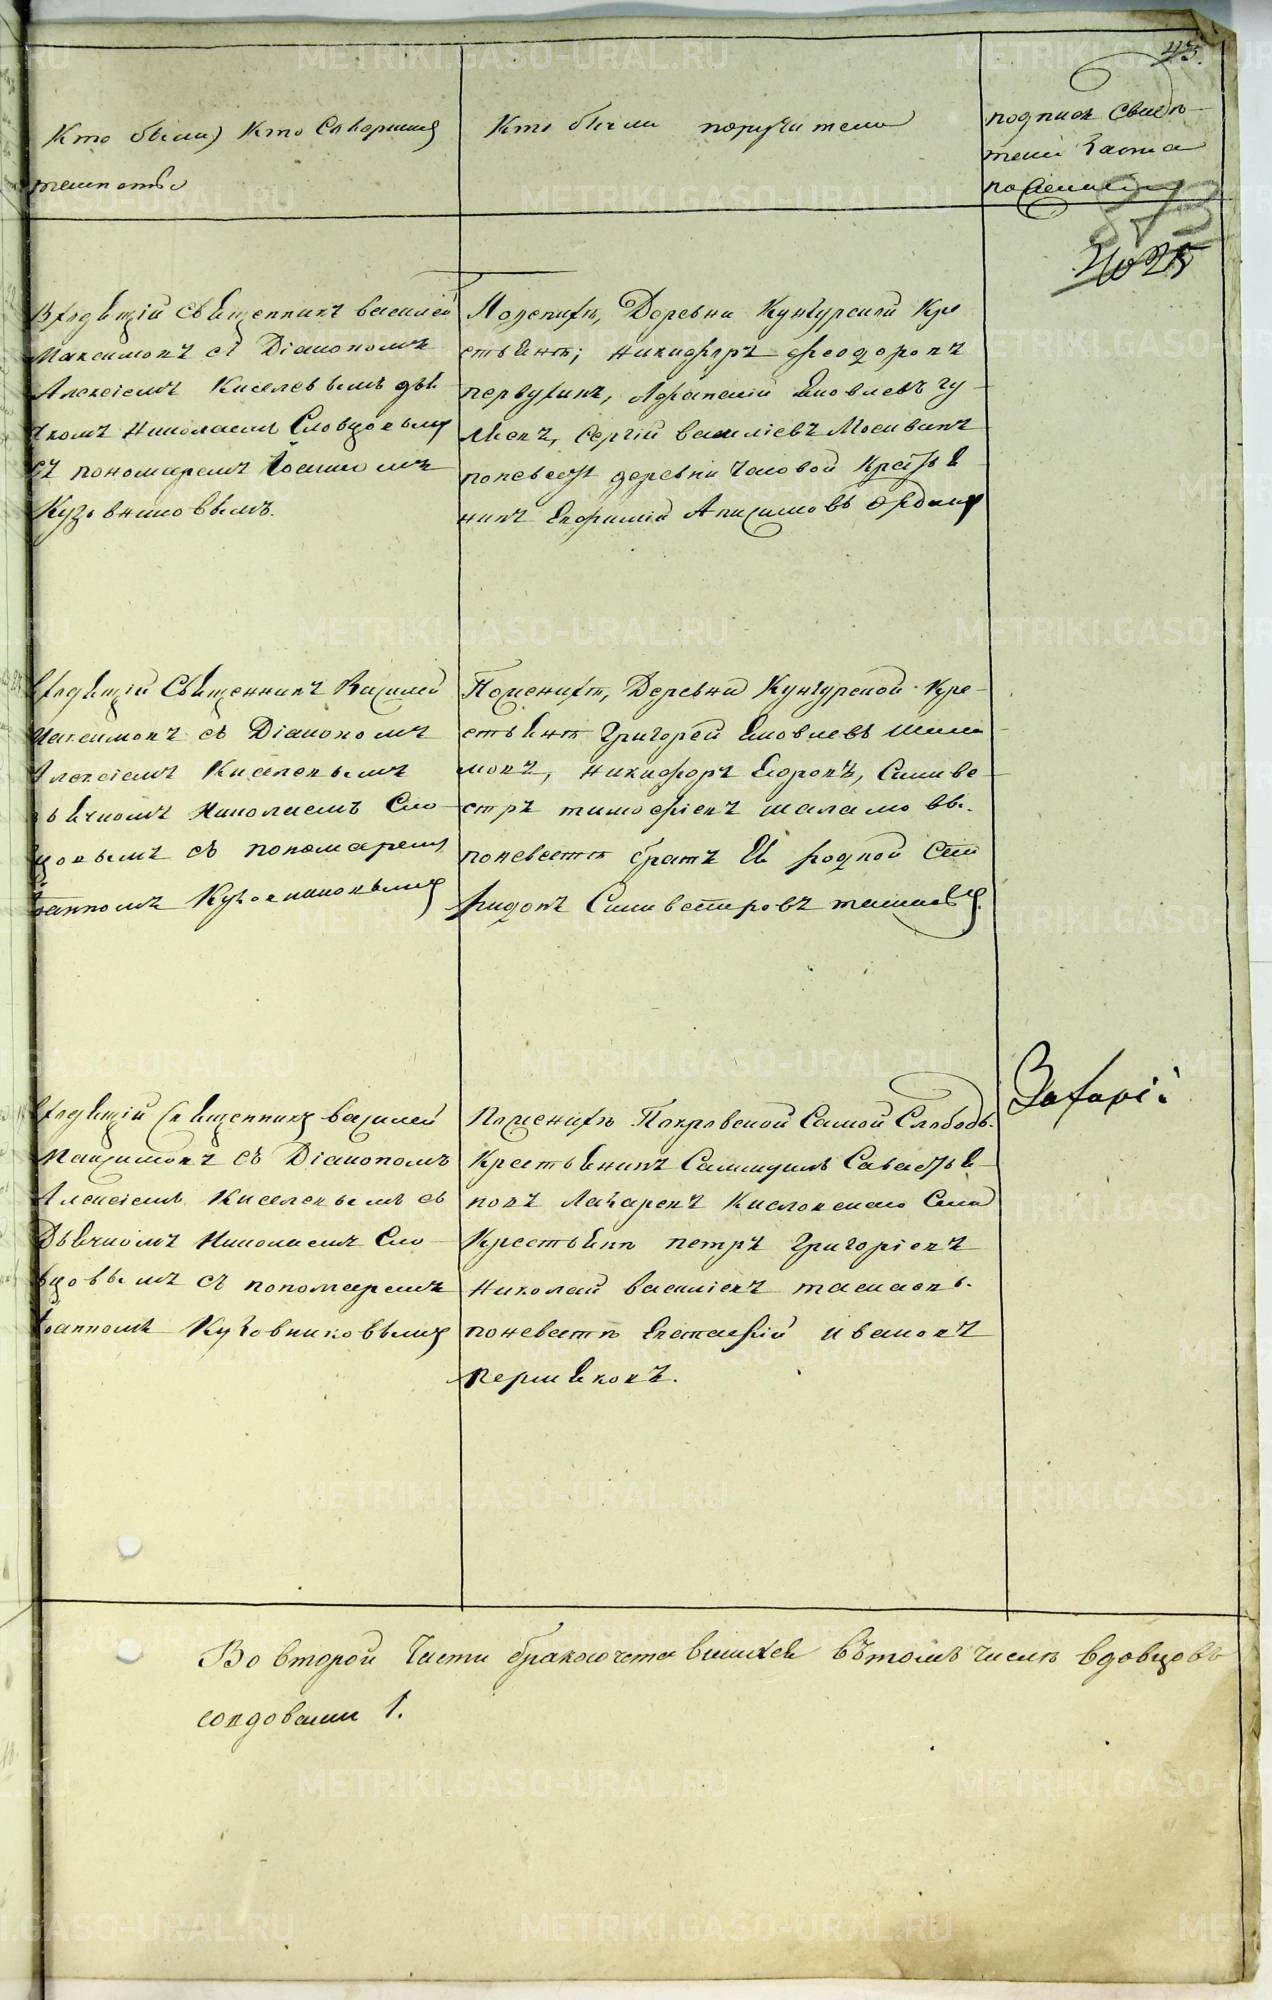 43.
Кто были) Кто Совершилъ
таинство
Кто были поручители
подписи Свидѣ-
телей
4025
Приходящій священникъ василей
Максимовъ съ Діакономъ
Алексіемъ Киселевымъ дья-
чкомъ Николаемъ Словцовымъ
съ пономаремъ Іоанномъ
Кузовниковымъ.
По женихѣ, Деревни Кунгурской Кре
стьянѣ; никифоръ феодоровъ
первухинъ, Афанасій Яковлевъ гу-
сергій василіевъ Москвинъ
по невестѣ деревни Часовой Крестья
нинъ Ефримій Анисимовъ
Священникъ Василей
Максимовъ съ Діакономъ
Алексіемъ Киселевымъ
дьячкомъ Николаемъ Сло-
вцовымъ съ пономаремъ
Іоанномъ Кузовниковымъ
По женихѣ, Деревни Кунгурской Кре-
стьянѣ Григорей Яковлевъ
никифоръ Егоровъ, Силиве-
стръ тимофіевъ шаламовы.
по невестѣ братъ Ея родной Спи
ридонъ Силивестровъ
Священникъ василей
Максимовъ съ Діакономъ
Алексіемъ Киселевымъ съ
Дьячкомъ Николаемъ Сло-
вцовымъ съ пономаремъ
Іоанномъ Кузовниковымъ
По женихѣ Покровской Самой Слободы
Крестьянинъ Савастья-
новъ Лазаревъ Кисловскаго Села
Крестьяне петръ Григоріевъ
Николай василіевъ
по невестѣ Евстафій ивановъ
першяковъ.
Захаріи
Во второй Части бракосочетавшихся въ томъ числѣ вдовцовъ
совдовами 1.
METRIKI.GASO-URAL.RU